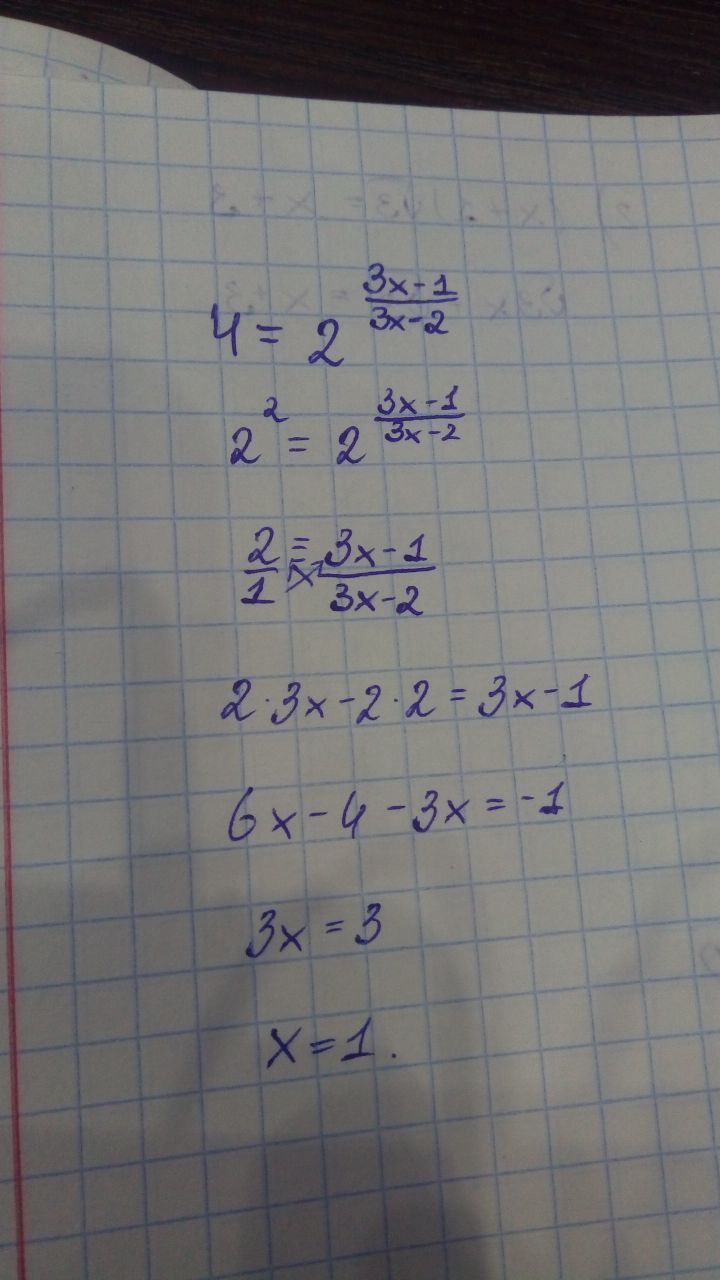 4 = 2^((3x-1)/(3x-2))
2^2 = 2^((3x-1)/(3x-2))
2/1 = (3x-1)/(3x-2)
2·3x-2·2 = 3x-1
6x-4-3x = -1
3x = 3
x = 1.